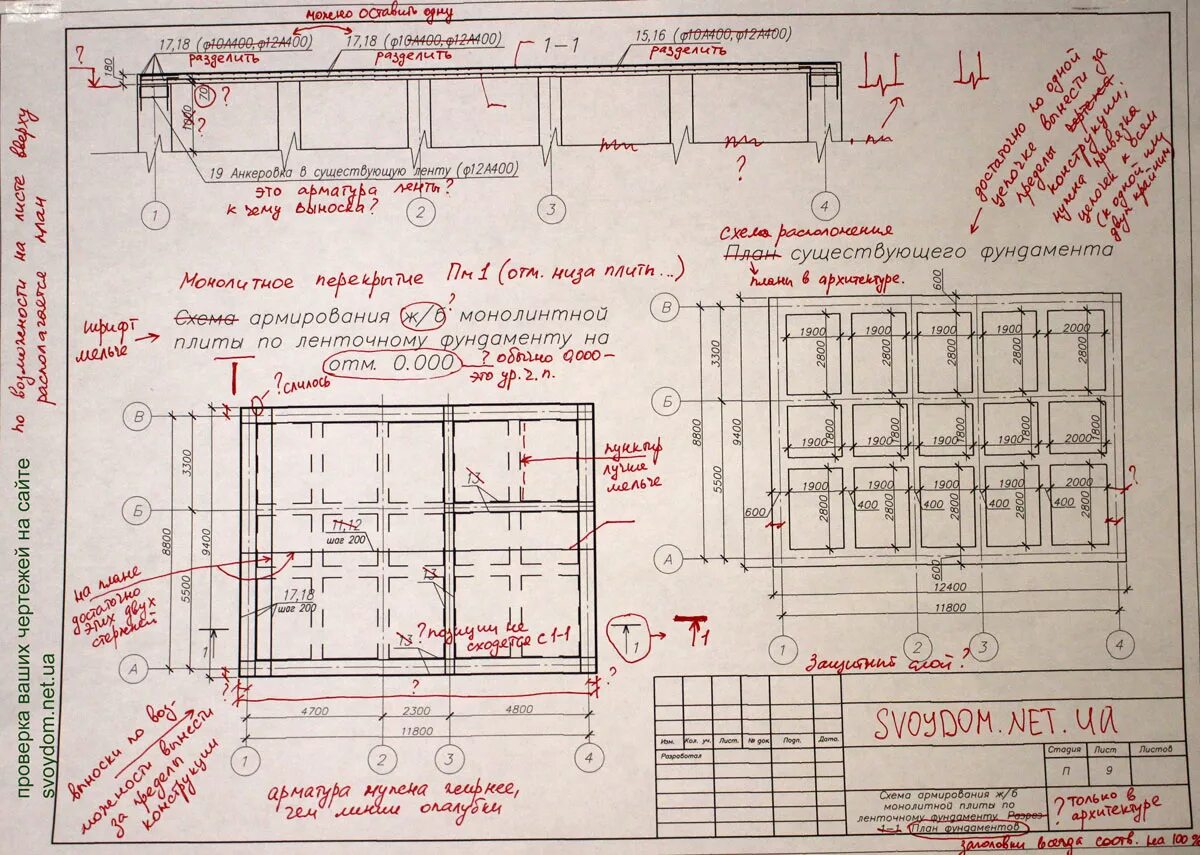 можно оставить одну
17,18 (ф10А400,ф12А400)
разделить
17,18 (ф10А400,ф12А400)
разделить
1-1
15,16 (ф10А400,ф12А400)
разделить
?
180
70
?
1000
?
19 Анкеровка в существующую ленту (ф12А400)
это арматура ленты?
к чему выноска?
?
1
2
3
4
достаточно по одной
цепочке вынести за
пределы чертежа
конструкции,
нужна привязка
цепочек к осям
(к одной или
двум крайним)
по возможности на листе вверху
располагается план
проверка ваших чертежей на сайте
svoydom.net.ua
Монолитное перекрытие Пм1 (отм. низа плиты...)
Схема армирования ж/б монолинтной
?
плиты по ленточному фундаменту на
отм. 0.000
? обычно 0,000 -
это ур. ч. п.
шрифт
мельче
? слилось
В
Б
А
3300
5500
8800
9400
13
11,12
шаг 200
13
17,18
шаг 200
13
? позиции не
сходятся с 1-1
пунктир
лучше
мельче
на плане
достаточно
этих двух
стержней
1
1
1
?
?
?
4700
2300
4800
11800
1
2
3
4
выноски по воз-
можности вынести
за пределы
конструкции
арматура нужена жирнее,
чем линии опалубки
схема расположения
План существующего фундамента
планы в архитектуре.
600
В
Б
А
3300
5500
8800
9400
1900
1900
1900
1900
2000
2800
2800
2800
2800
2800
1900
1900
1900
1900
2000
1800
1800
1800
1800
1800
1900
1900
1900
1900
2000
2800
2800
2800
2800
2800
400
400
400
400
600
?
600
12400
11800
1
2
3
4
Защитный слой?
SVOYDOM.NET.UA
Изм.
Кол. уч.
Лист.
№ док
Подп.
Дата.
Разработал
Стадия
Лист
Листов
П
9
Схема армирования ж/б
монолитной плиты по
ленточному фундаменту. Разрез
1-1 План фундаментов
? только в
архитектуре
заголовки всегда соотв. на 100%